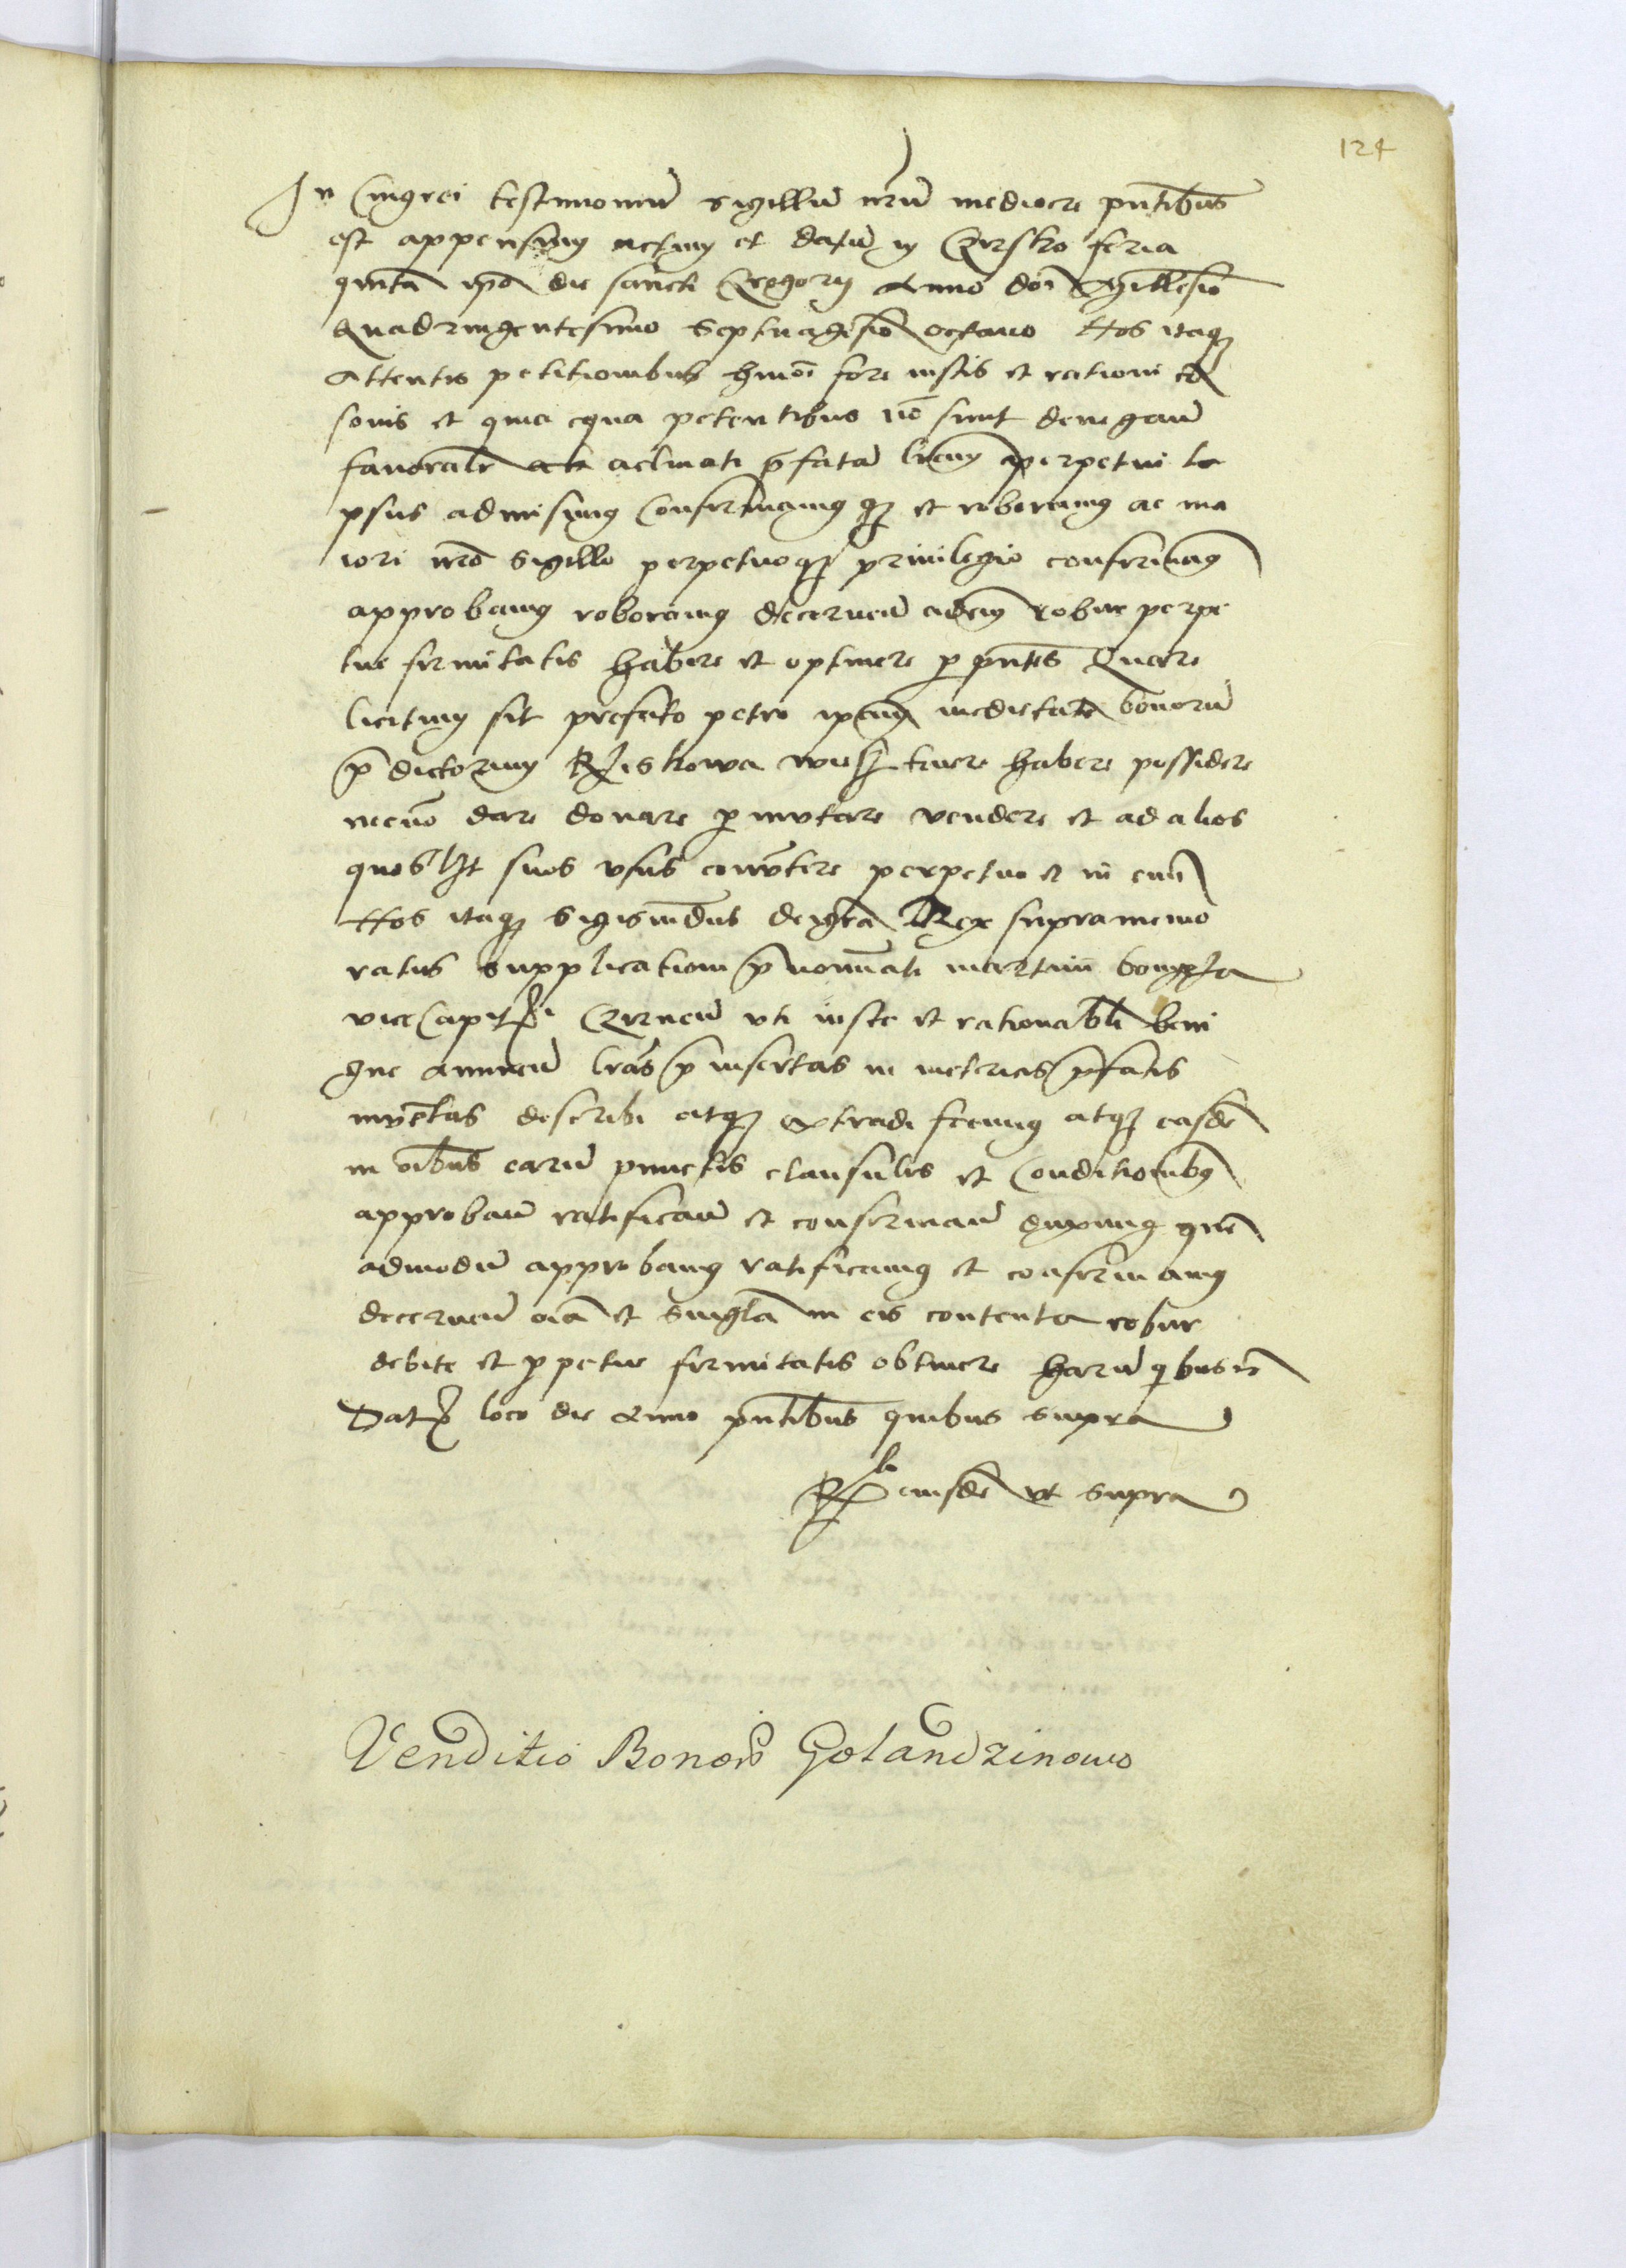 124
In Cuius rei testimoniu sigillu nrm mediocre pntibus
est appensum actum et datu in Czirsko feria
quinta ipo die sancti Gregorij Anno dni Millesio
quadringentesimo septuagesio octauo Nos itaq
Attentis petitionibus hmoi fore iustis et rationi co
sonis et quia equa petentibus no sunt denegan
fauorabr aclinati pfata lram perpetui la
psus admisimus Confirmamus q et roboramus ac ma
iori nro sigillo perpetuoq priuilegio confirmamus
approbamus roboramus decernen eidem robur perpe
tue firmitatis habere et optinere p pntes Quare
licitum sit prefato petro ipam medietate bonoru
pdictorum tenere habere possidere
necno dare donare pmutare vendere et ad alios
quoslt suos vsus couertere perpetuo et in euu
Nos itaq Sigismudus dei gra Rex supramemo
ratus supplicationi pnominati martini
vice Capit Czirnen vti iuste et rationabli beni
gne annuen lras pinsertas in metricis pfatis
inuentas describi atq extradi fecimus atq easde
in oibus earu punctis clausulis et Conditionibus
approban ratifican et confirman duximus que
admodu approbamus ratificamus et confirmamus
decernen oia et singla in eis contenta robur
debite et ppetue firmitatis obtinere haru quibus
Dat loco die Anno pntibus quibus supra
Rlo eiusde vt supra
Venditio Bonor Golandzinowo